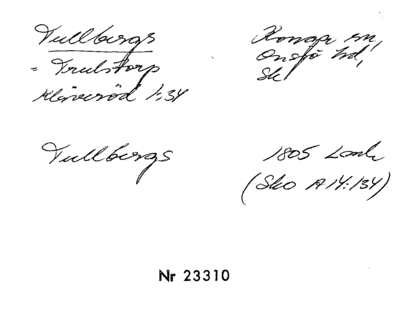 Tullbergs
= Trulstorp
Klöveröd 1:34
Konga sn,
Onsjö hd,
Sk
Tullbergs
1805 Lantm
(Sko A14:134)
Nr 23310